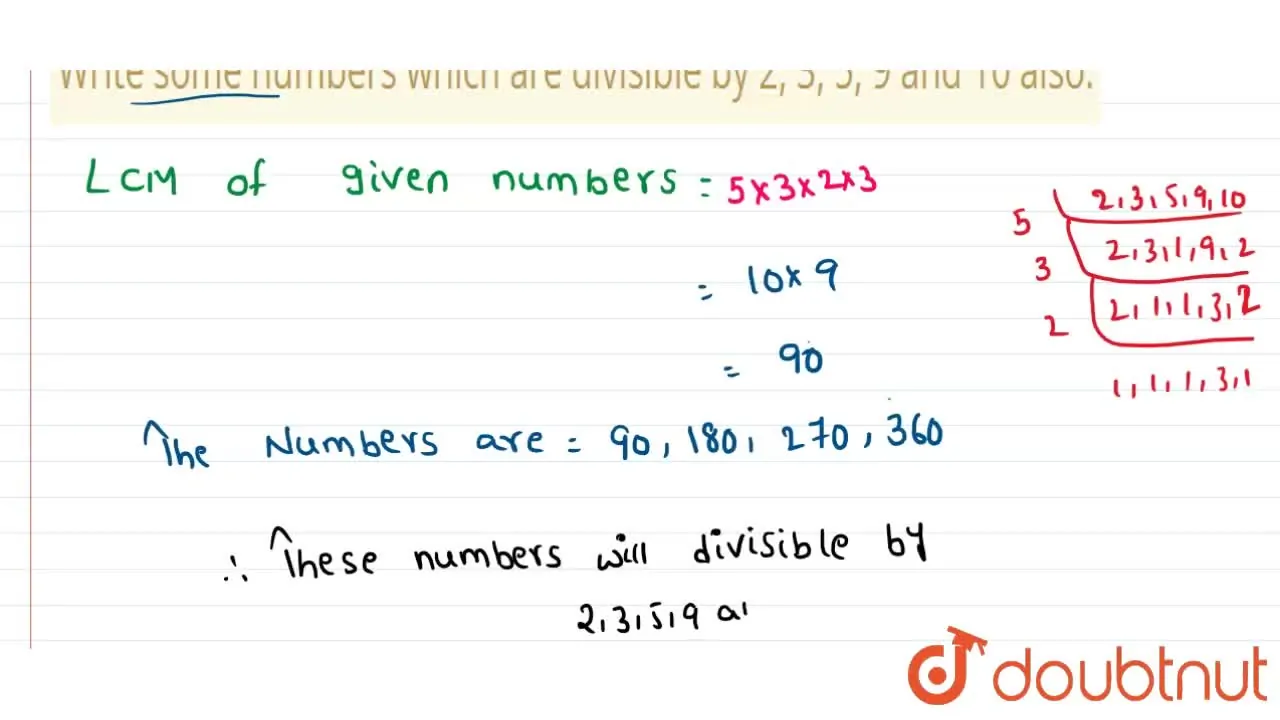 Write some numbers which are divisible by 2, 3, 5, 9 and 10 also.
LCM of given numbers = 5×3×2×3
= 10×9
= 90
The Numbers are = 90, 180, 270, 360
∴ These numbers will divisible by
2,3,5,9 a
2,3,5,9,10
5 2,3,1,9,2
3 2,1,1,3,2
2
1,1,1,3,1
doubtnut